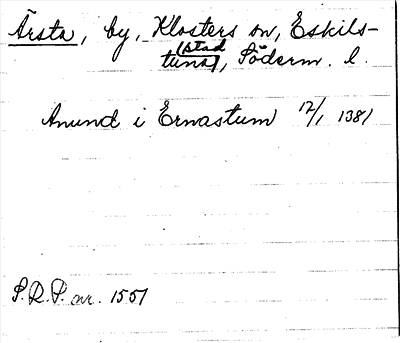 Årsta, by, Klosters sn, Eskils-
(stad
tuna), Söderm. l.
Anund i Ernastum 12/1 1381
S.R.P. nr. 1551